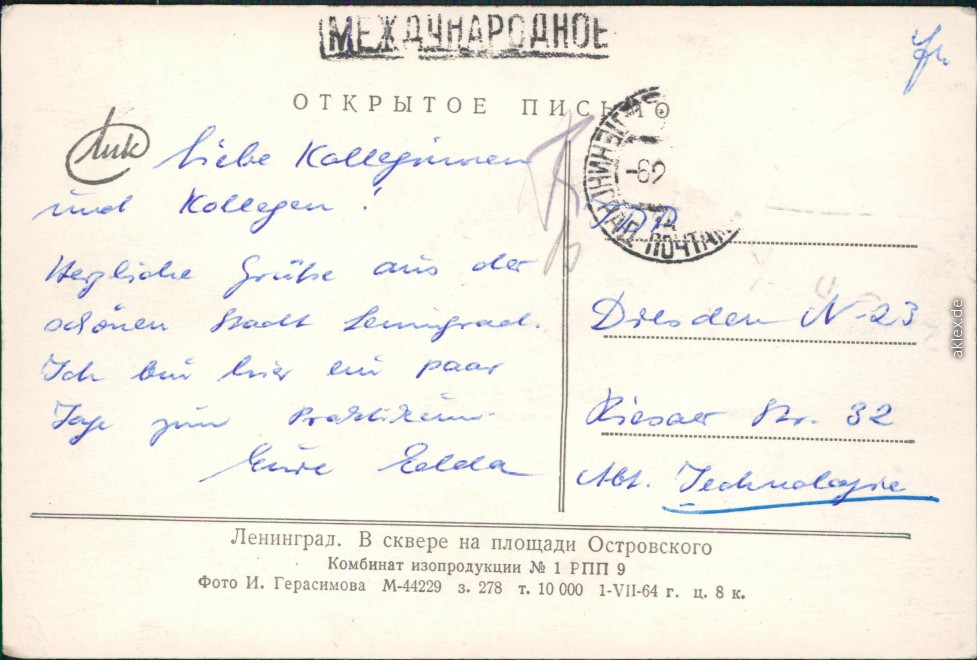 МЕЖДУНАРОДНОЕ
ОТКРЫТОЕ ПИСЬМО
Liebe Kolleginnen
und Kollegen!
Herzliche Grüße aus der
schönen Stadt Leningrad.
Ich bin hier ein paar
Tage zum Praktikum.
Eure Edda
ЛЕНИНГРАД ПОЧТАМТ
DDR
Dresden N-23
Riesaer Str. 32
Abt. Technologie
Ленинград. В сквере на площади Островского
Комбинат изопродукции № 1 РПП 9
Фото И. Герасимова М-44229 з. 278 т. 10 000 1-VII-64 г. ц. 8 к.
aklex.de